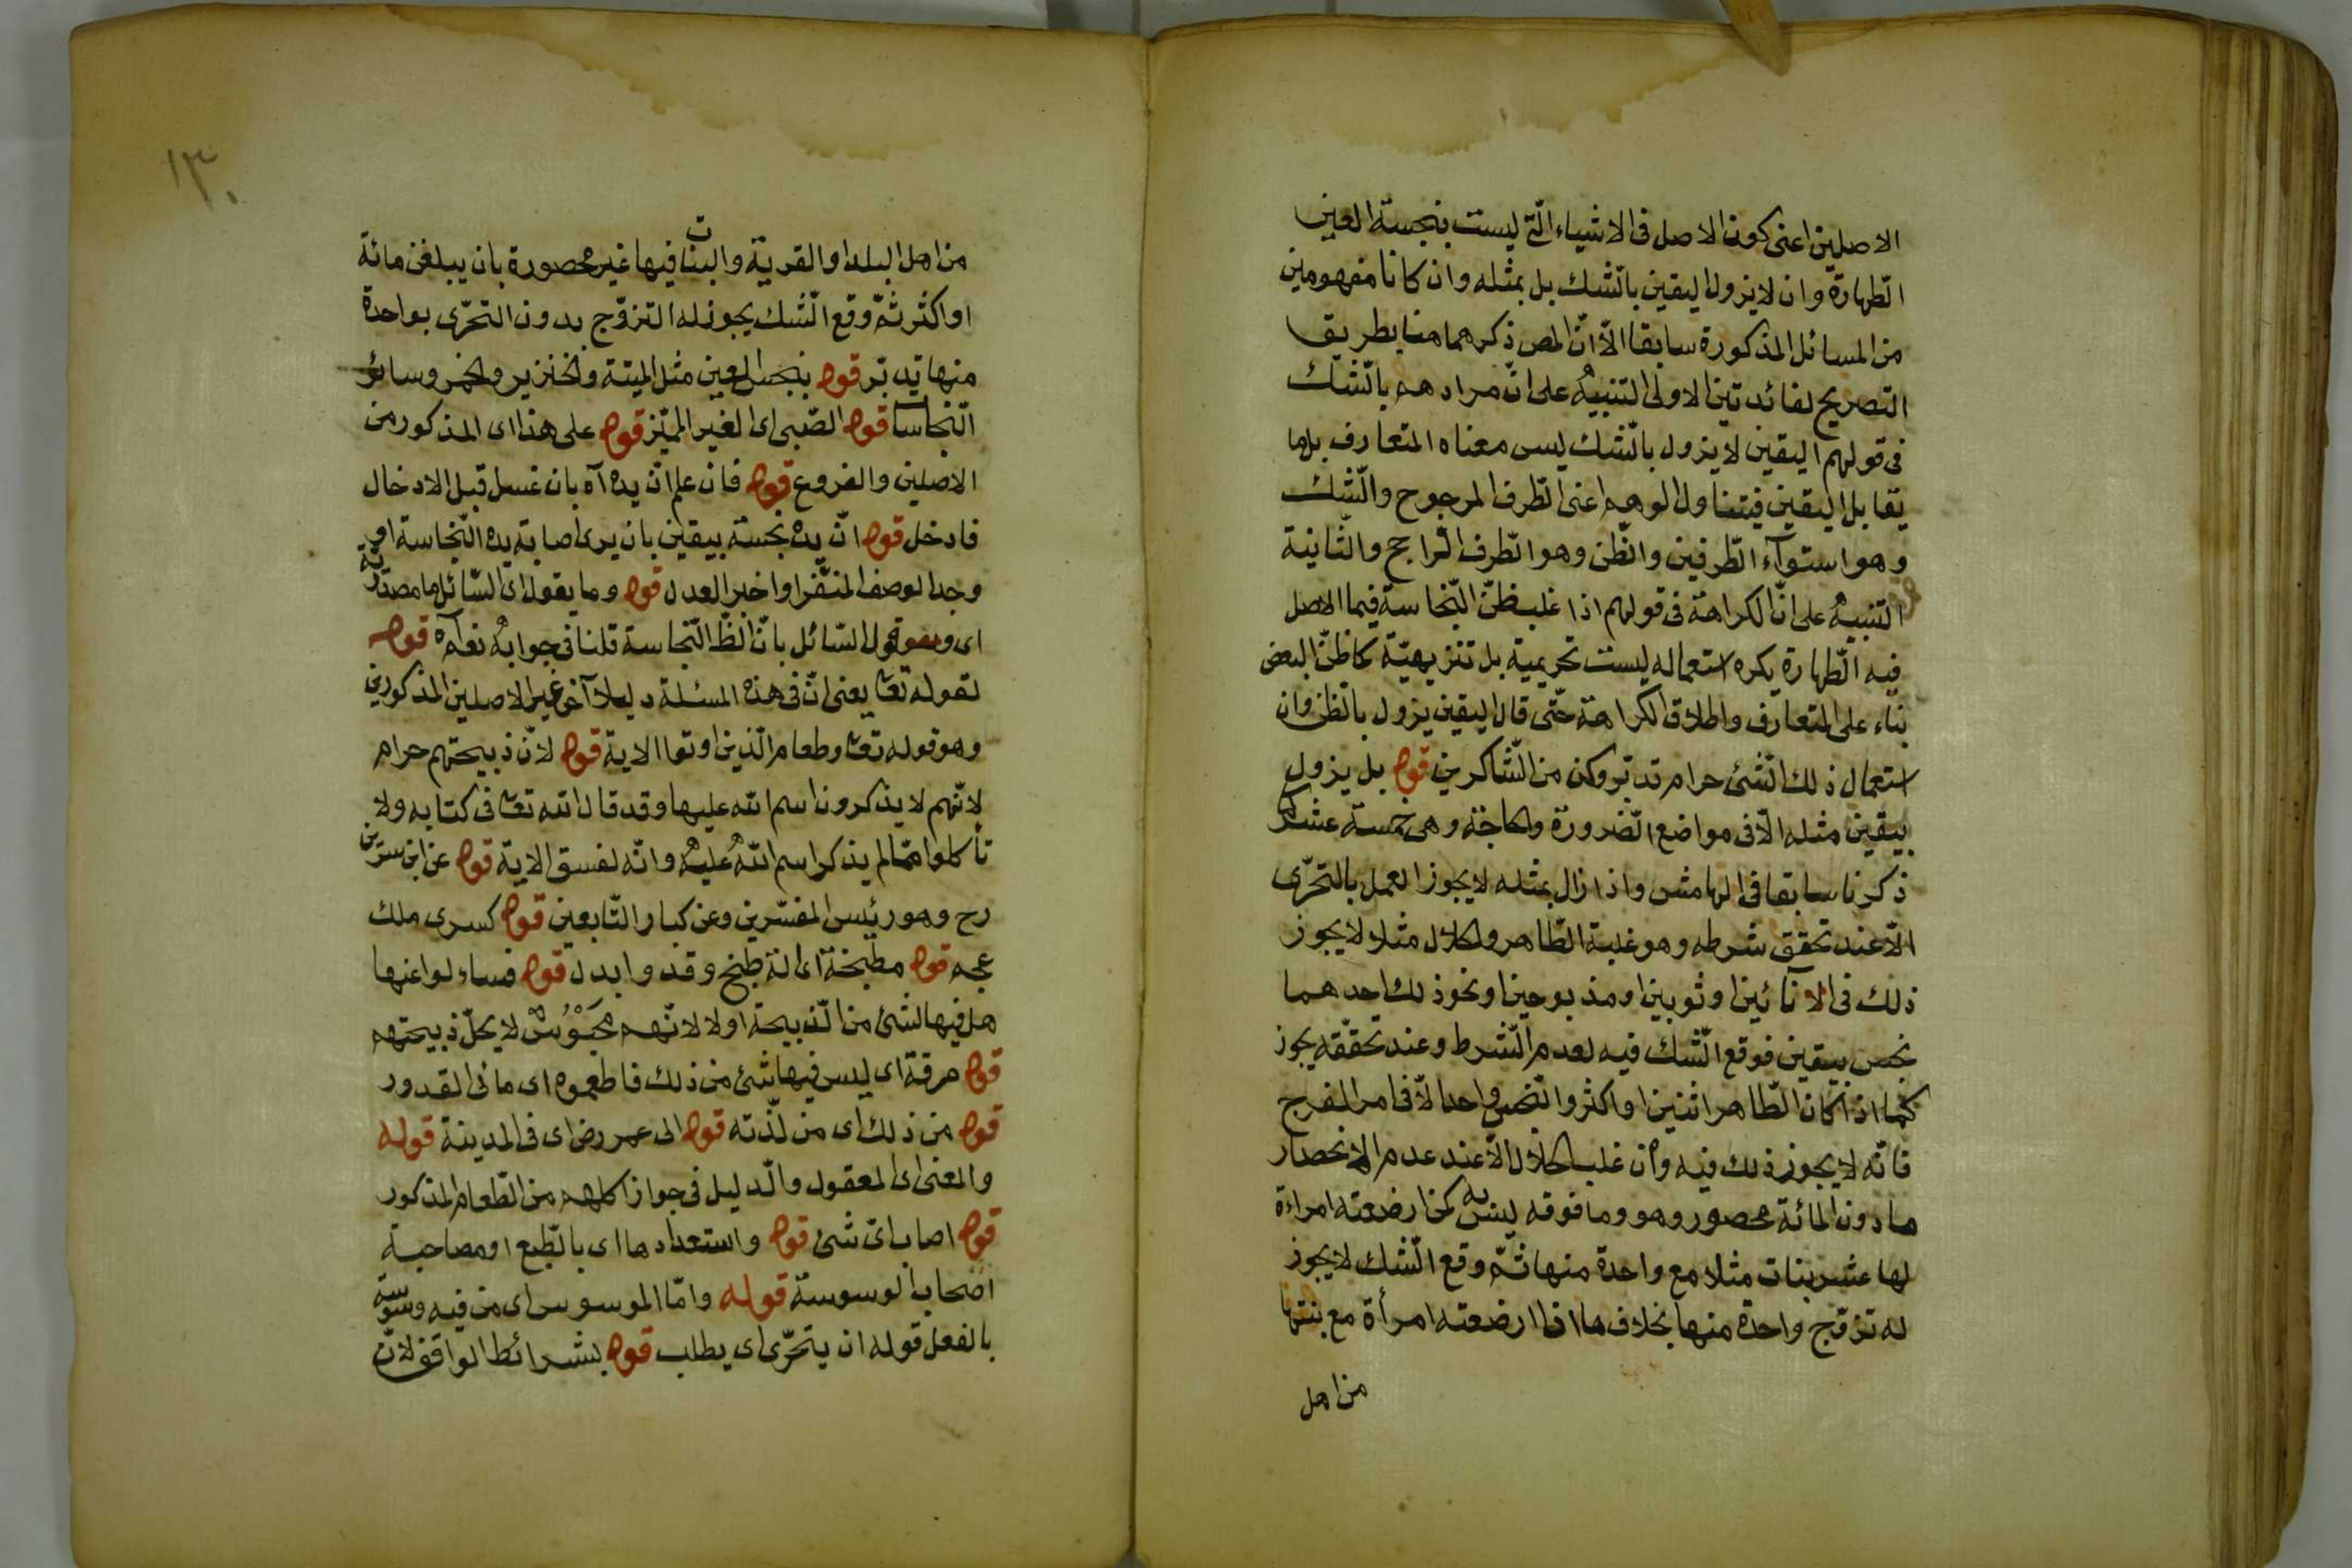 الاصلين اعنى كون الاصل فى الاشياء الّتى ليست بنجسة العين
الطّهارة وان لا يزول اليقين بالشّك بل بمثله وان كانا مفهومين
من المسائل المذكورة سابقا الّا انّ المص ذكرهما هنا بطريق
التصريح لفائدتين الاولى التنبيه على انّ مرادهم بالشّك
فى قولهم اليقين لا يزول بالشّك ليس معناه المتعارف بل ما
يقابل اليقين فيتناول الوهم اعنى الطّرف المرجوح والشّك
وهو استوآء الطّرفين والظّن وهو الطّرف الرّاجح والثّانية
التنبيه على انّ الكراهة فى قولهم اذا غلب ظنّ النّجاسة فيما الاصل
فيه الطّهارة يكره استعماله ليست تحريمية بل تنزيهيّة كما ظنّ البعض
بناء على المتعارف واطلاق الكراهة حتّى قال اليقين يزول بالظن وان
استعمال ذلك الشّئ حرام تدبّر وكن من الشّاكرين قوله بل يزول
بيقين مثله الّا فى مواضع الضّرورة والحاجة وهى خمسة عشر كما
ذكرنا سابقا فى الهامش واذا زال بمثله لا يجوز العمل بالتحرّى
الّا عند تحقق شرطه وهو غلبة الطّاهر والحلال مثلا لا يجوز
ذلك فى الآنائين او ثوبين او مذبوحين او نحو ذلك احدهما
نجس بيقين فوقع الشّك فيه لعدم الشّرط وعند تحقّقه يجوز
كما اذا كان الطّاهر اثنين او اكثر والنّجس واحدا الّا فى امر الفرج
فانّه لا يجوز ذلك فيه وان غلب الحلال الّا عند عدم الانحصار
ما دون المائة محصور وهو وما فوقه ليس به كمن ارضعته امراءة
لها عشر بنات مثلا مع واحدة منها ثمّ وقع الشّك لا يجوز
له تزوّج واحدة منها بخلاف ما اذا ارضعته امرأة مع بنتها
من اهل
١٣٠
من اهل البلد او القرية والبنات فيها غير محصورة بان يبلغن مائة
او اكثر ثمّ وقع الشّك يجوز له التزوّج بدون التحرّى بواحدة
منها تدبّر قوله بنجس العين مثل الميتة والخنزير والخمر وسائر
النّجاسا قوله الصّبى اى الغير المميّز قوله على هذا اى المذكور من
الاصلين والفروع قوله فان علم انّ يده آه بان غسل قبل الادخال
فادخل قوله انّ يده نجسة بيقين بان يرى اصابة يده النّجاسة او
وجد الوصف المنفّر او اخبر العدل قوله وما يقول اى السّائل ما مصدريّة
اى وهو قول السّائل بانّ الظّ النّجاسة قلنا فى جوابه نعم آه قوله
لقوله تعا يعنى انّ فى هذه المسئلة دليلا آخر غير الاصلين المذكورين
وهو قوله تعا وطعام الّذين اوتوا الاية قوله لانّ ذبيحتهم حرام
لانّهم لا يذكرون اسم الله عليها وقد قال الله تعا فى كتابه ولا
تأكلوا ممّا لم يذكر اسم الله عليه وانّه لفسق الاية قوله عن ابن سيرين
رح وهو رئيس المفسّرين وعن كبار التّابعين قوله كسرى ملك
عجم قوله مطبخة اى الة طبخ وقد وابدل قوله فساءلوا عنها
هل فيها الشئ من الذّبيحة اولا لانّهم مجَوْسٌ لا يحلّ ذبيحتهم
قوله مرقة اى ليس فيها شئ من ذلك فاطعموه اى ما فى القدور
قوله من ذلك اى من لذّته قوله الى عمر رض اى فى المدينة قوله
والمعنى اى المعقول والدّليل فى جواز اكلهم من الطّعام المذكور
قوله اصاب اىّ شئ قوله واستعدادها اى بالطّبع او مصاحبة
اصحاب الوسوسة قوله وامّا الموسوس اى من فيه وسوسة
بالفعل قوله ان يتحرّى اى يطلب قوله بشرائط الواقف لانّ